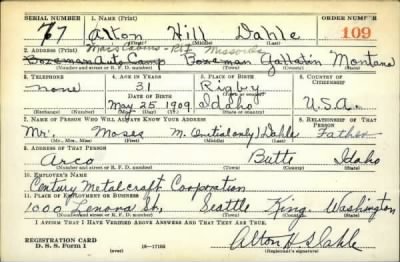 SERIAL NUMBER 1. NAME (Print) ORDER NUMBER
77 Alton Hill Dahle 109
(First) (Middle) (Last)
2. ADDRESS (Print) Mois Cabins - Rt 2 Missoula
Bozeman Auto Camp Bozeman Gallatin Montana
(Number and street or R. F. D. number) (Town) (County) (State)
3. TELEPHONE 4. AGE IN YEARS 5. PLACE OF BIRTH 6. COUNTRY OF CITIZENSHIP
none 31 Rigby
DATE OF BIRTH
May 25 1909 Idaho U.S.A.
(Exchange) (Number) (Mo.) (Day) (Yr.) (State or country)
7. NAME OF PERSON WHO WILL ALWAYS KNOW YOUR ADDRESS 8. RELATIONSHIP OF THAT PERSON
Mr. Moses M. (Initial only) Dahle Father
(Mr., Mrs., Miss) (First) (Middle) (Last)
9. ADDRESS OF THAT PERSON
Arco Butte Idaho
(Number and street or R. F. D. number) (Town) (County) (State)
10. EMPLOYER'S NAME
Century Metalcraft Corporation
11. PLACE OF EMPLOYMENT OR BUSINESS
1000 Lenora St., Seattle King Washington
(Number and street or R. F. D. number) (Town) (County) (State)
I AFFIRM THAT I HAVE VERIFIED ABOVE ANSWERS AND THAT THEY ARE TRUE.
REGISTRATION CARD
D. S. S. Form 1 (over) 16-17105 Alton H Dahle
(Registrant's signature)